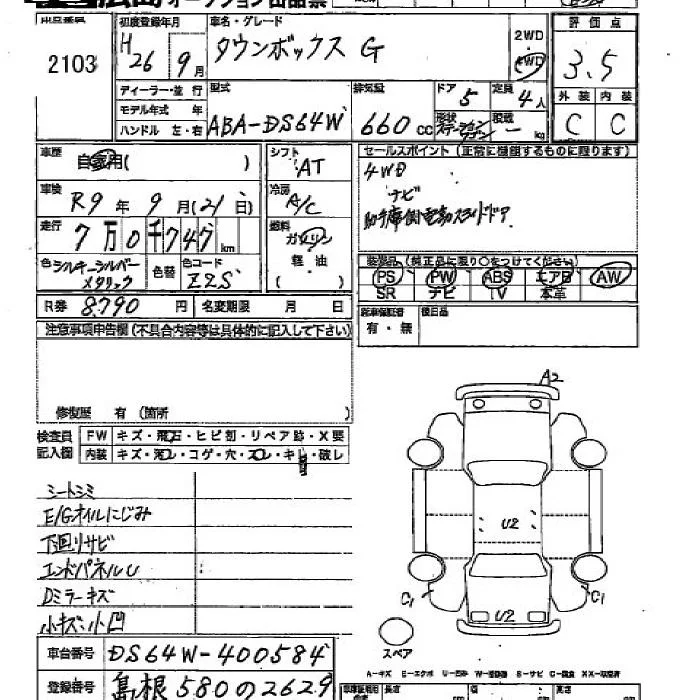 広島オークション出品票
出品番号 初度登録年月 車名・グレード 評価点
2103 H26 9月 タウンボックス G 2WD 4WD 3.5
ディーラー・並行 型式 排気量 ドア 定員 外装 内装
モデル年式 年 5 4人 C C
ハンドル 左・右 ABA-DS64W 660cc 形状 ステーションワゴン 積載 - kg
車歴 自家用( ) シフト AT セールスポイント(正常に機能するものに限ります)
4WD
車検 R9年9月(21日) 冷房 A/C ナビ
助手席側電動スライドドア
走行 7万0千747km 燃料 ガソリン
軽油
( )
色 シルキーシルバーメタリック 色替 色コード Z2S
装備品(純正品に限り○をつけてください)
PS PW ABS エアB AW
SR ナビ TV 本革
R券 8,790円 名変期限 月 日
新車保証書 後日品
有・無
注意事項申告欄(不具合内容等は具体的に記入して下さい)
修復歴 有(箇所 )
検査員記入欄 FW キズ・飛石・ヒビ割・リペア跡・X要
内装 キズ・汚レ・コゲ・穴・スレ・キレ・破レ
シートシミ
E/Gオイルにじみ
下回りサビ
エンドパネルU
Dミラーキズ
小キズ小凹
A2
U2
C1 C1
U2
スペア
車台番号 DS64W-400584
登録番号 島根580の2629
A-キズ E-エクボ U-凹み W-補修跡 S-サビ C-腐食 XX-交換済